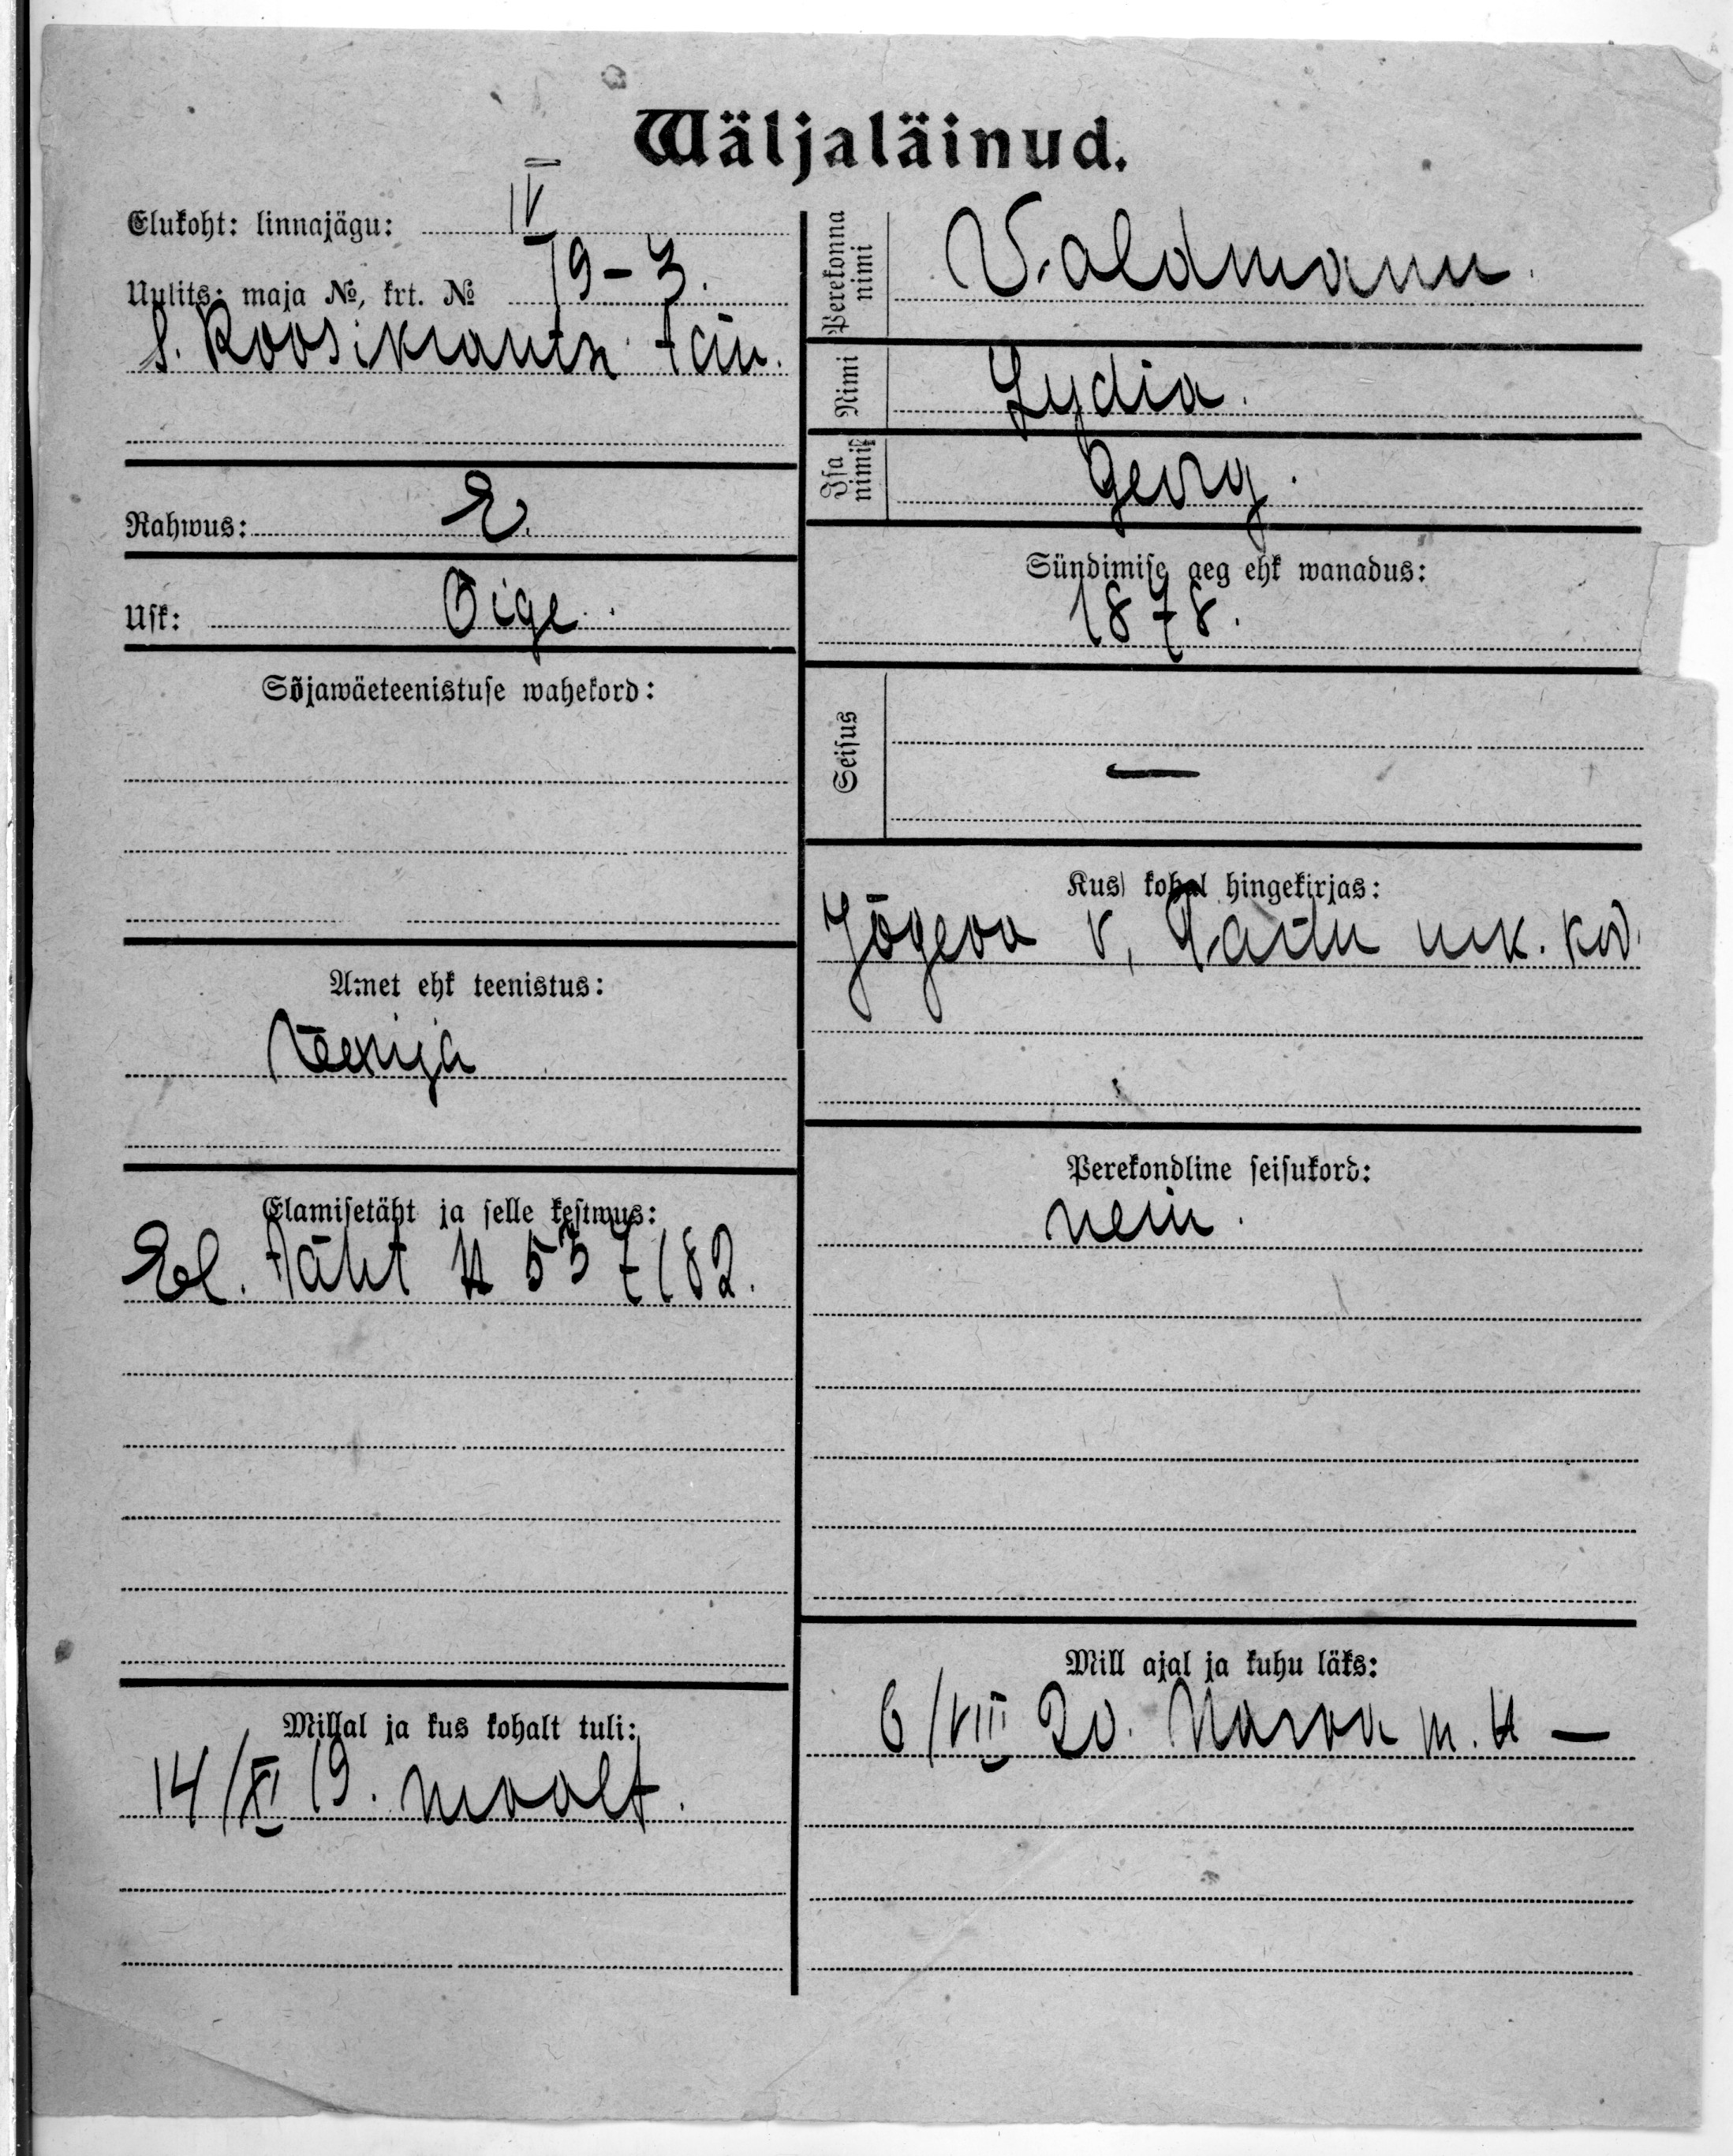 Wäljaläinud.
Elukoht: linnajägu: IV
Uulits: maja №, krt. № 19-3.
S. Roosikrantsi tän.
Rahwus: E.
Usk: Õige.
Sõjawäeteenistuse wahekord:
Amet ehk teenistus:
teenija
Elamisetäht ja selle kestwus:
El. täht № 537182.
Millal ja kus kohalt tuli:
14/XI 19. maalt.
Perekonna nimi Valdmann.
Nimi Lydia.
Isa nimi Georg.
Sündimise aeg ehk wanadus:
1878.
Seisus —
Kus kohal hingekirjas:
Jõgeva v, Tartu mk. kod.
Perekondline seisukord:
neiu.
Mill ajal ja kuhu läks:
6/VIII 20. Narva m. № —